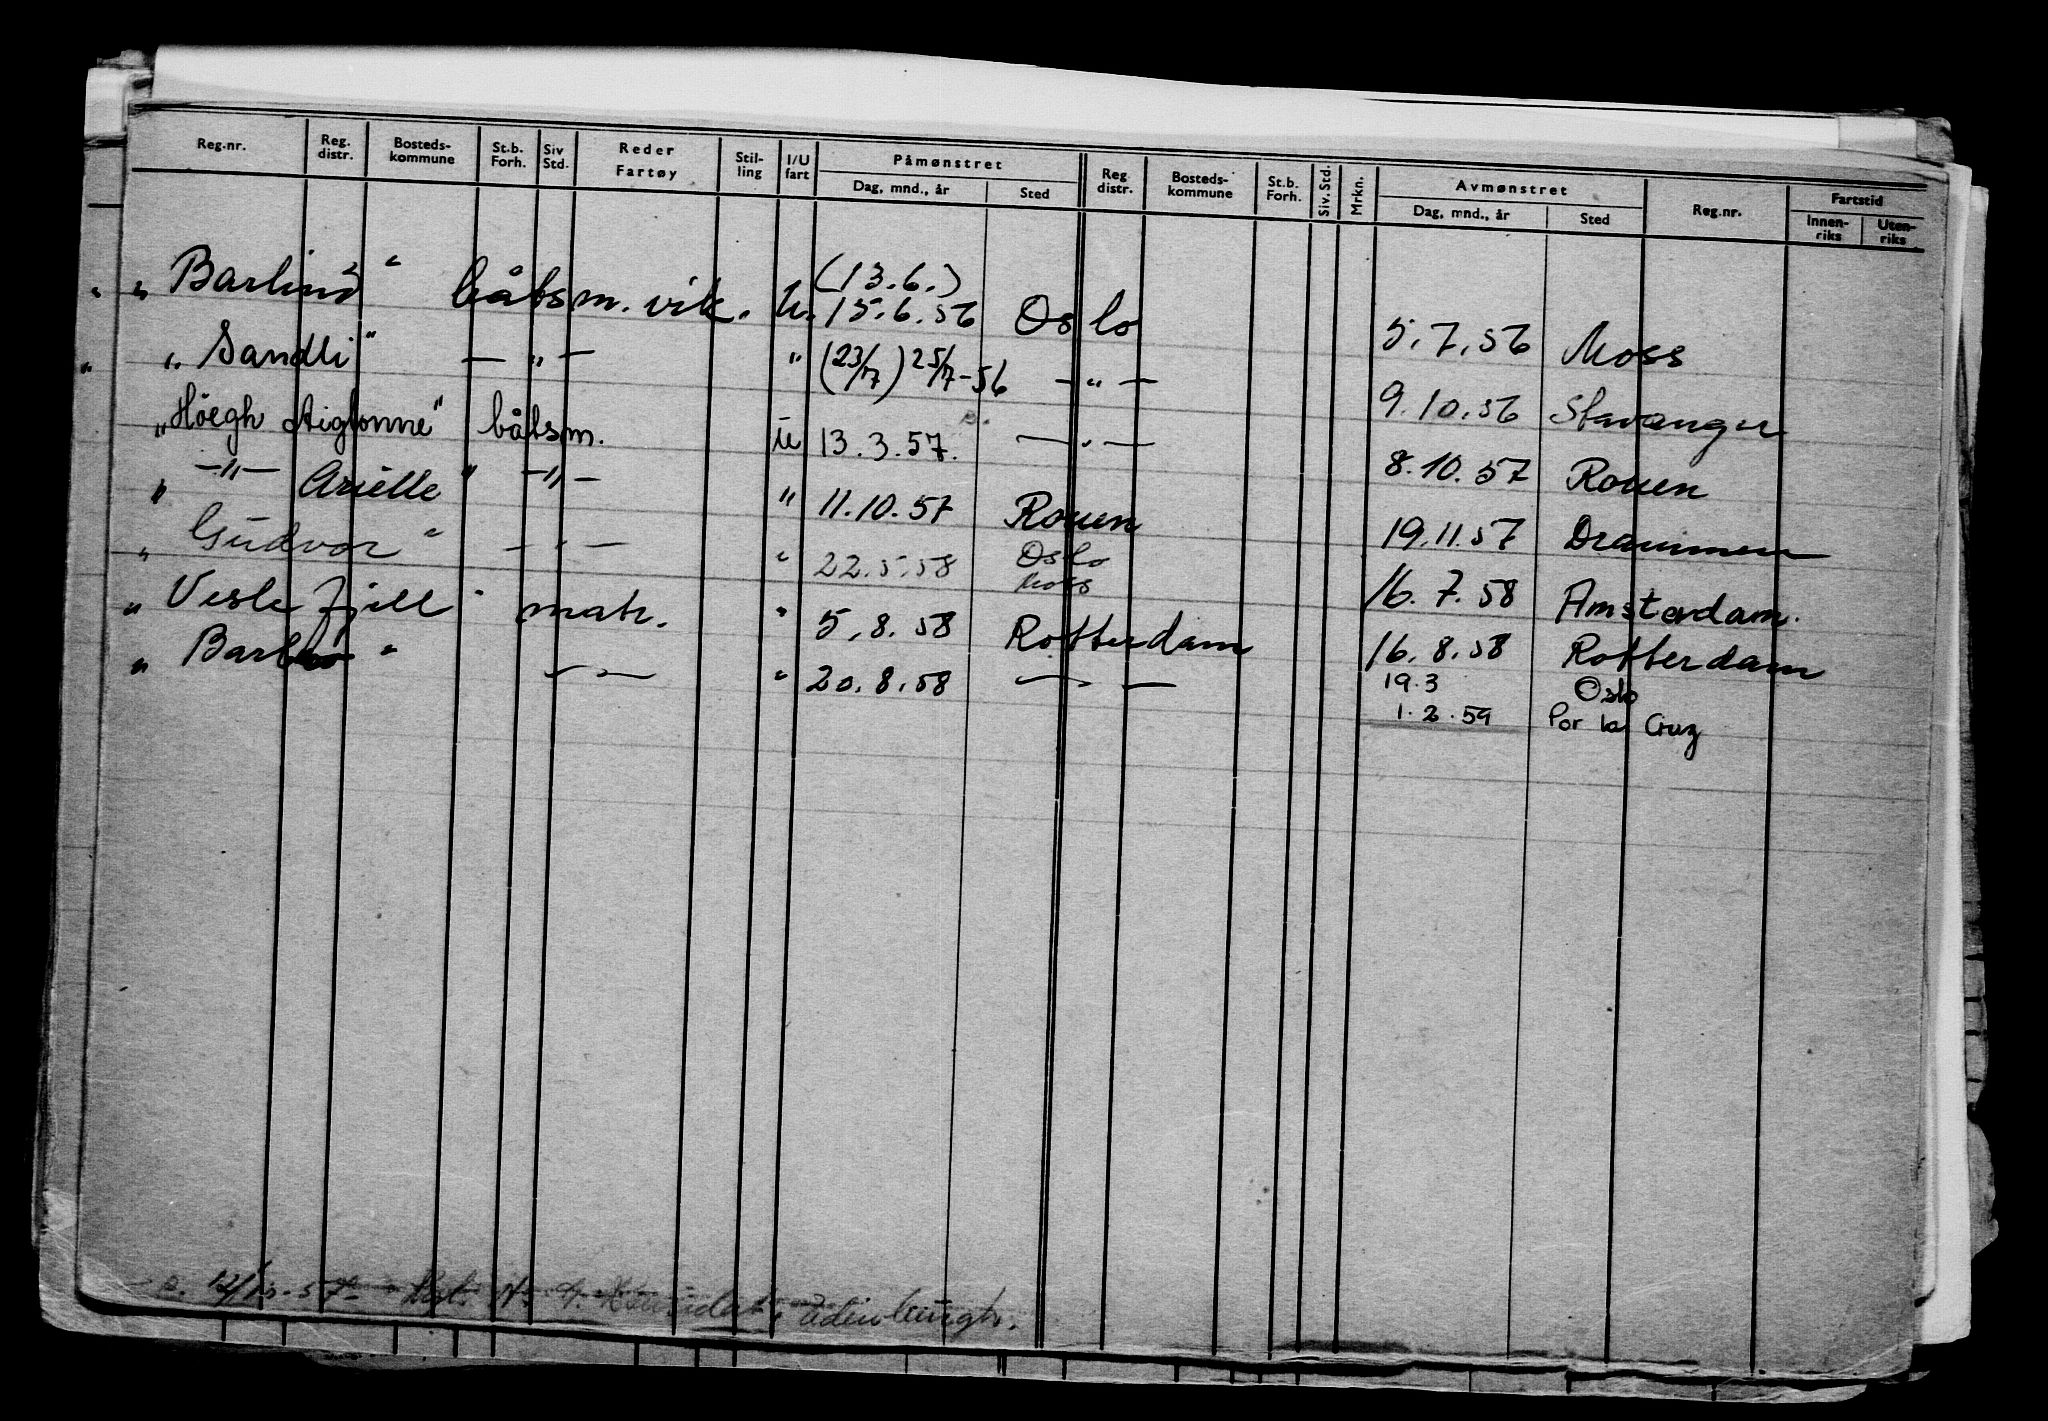 Reg.nr. Reg. distr. Bosteds-kommune St.b. Forh. Siv Std. Reder Fartøy Stil-ling I/U fart Påmønstret Dag, mnd., år Sted Reg distr. Bosteds-kommune St.b. Forh. Siv. Std. Mrkn. Avmønstret Dag, mnd., år Sted Reg.nr. Fartstid Innen-riks Uten-riks
(13.6.)
" " Barlind " båtsm. vik. u. 15.6.56 Oslo 5.7.56 Moss
" " Sandli " — " — " (23/7) 25/7-56 — " — 9.10.56 Stavanger
" Höegh Aiglonne " båtsm. u 13.3.57. — " — 8.10.57 Rouen
" —"— Arielle " —"— " 11.10.57 Rouen 19.11.57 Drammen
" Gudvor " — " — " 22.5.58 Oslo Moss 16.7.58 Amsterdam.
" Vesle fjell " matr. " 5.8.58 Rotterdam 16.8.58 Rotterdam
" Barbro " — " — " 20.8.58 — " — 19.3 Oslo
1.2.59 Por la Cruz
57 Edinburgh.